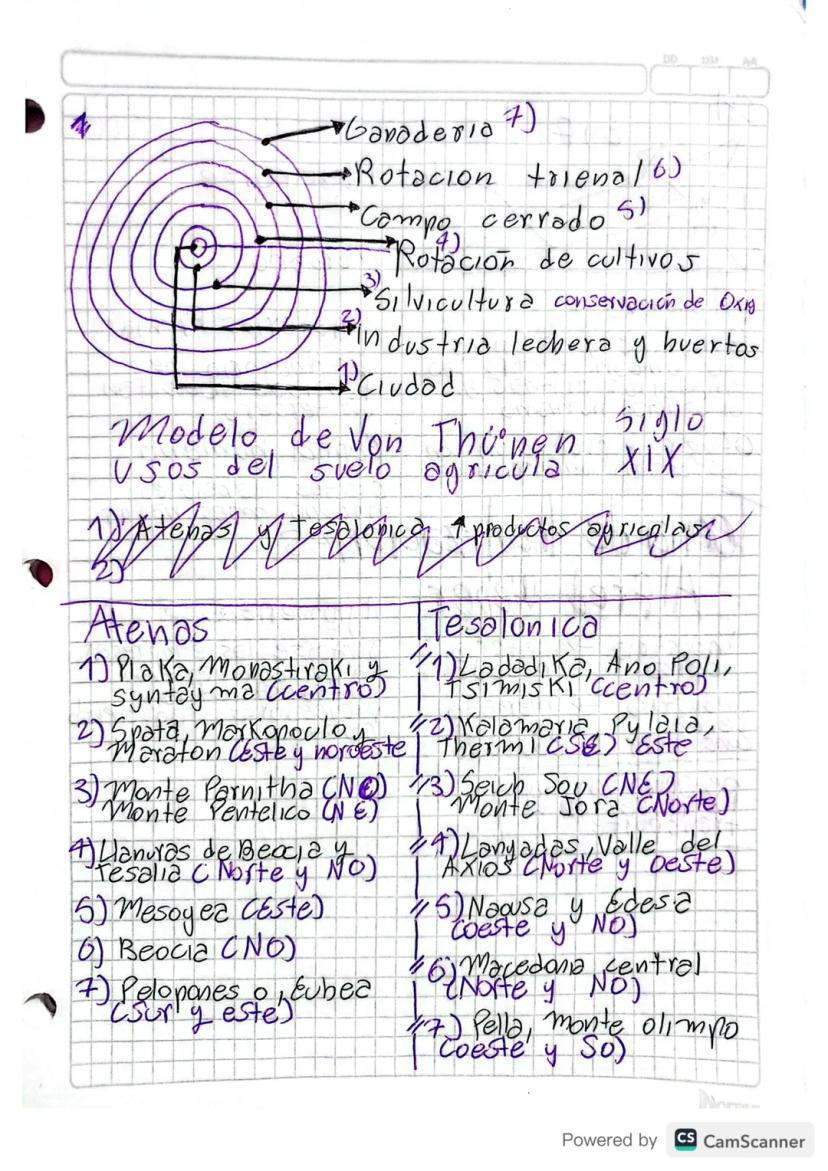 DD MM AA
Ganaderia 7)
Rotacion trienal 6)
Campo cerrado 5)
4)
Rotación de cultivos
3) Silvicultura conservación de Oxig
2) industria lechera y huertos
1) Ciudad
Modelo de Von Thünen Siglo
usos del suelo agricula XIX
1) Atenas y tesalonica ↑ productos agricolas
2)
Atenas
1) Plaka, Monastiraki y
syntayma (centro)
2) Spata, Markopoulo y
Maraton (Este y noroeste
3) Monte Parnitha (NO)
Monte Pentelico (NE)
4) Llanuras de Beocia y
Tesalia (Norte y NO)
5) Mesoyea (Este)
6) Beocia (NO)
7) Pelopones o, Eubea
(Sur y este)
Tesalonica
1) Ladadika, Ano Poli,
Tsimiski (centro)
2) Kalamaria, Pylaia,
Thermi (SE) Este
3) Seich Sou (NE)
Monte Jora (Norte)
4) Langadas, Valle del
Axios (Norte y Oeste)
5) Naousa y Edesa
(oeste y NO)
6) Macedonia central
(Norte y NO)
7) Pella, monte olimpo
(oeste y SO)
Norma
Powered by CS CamScanner